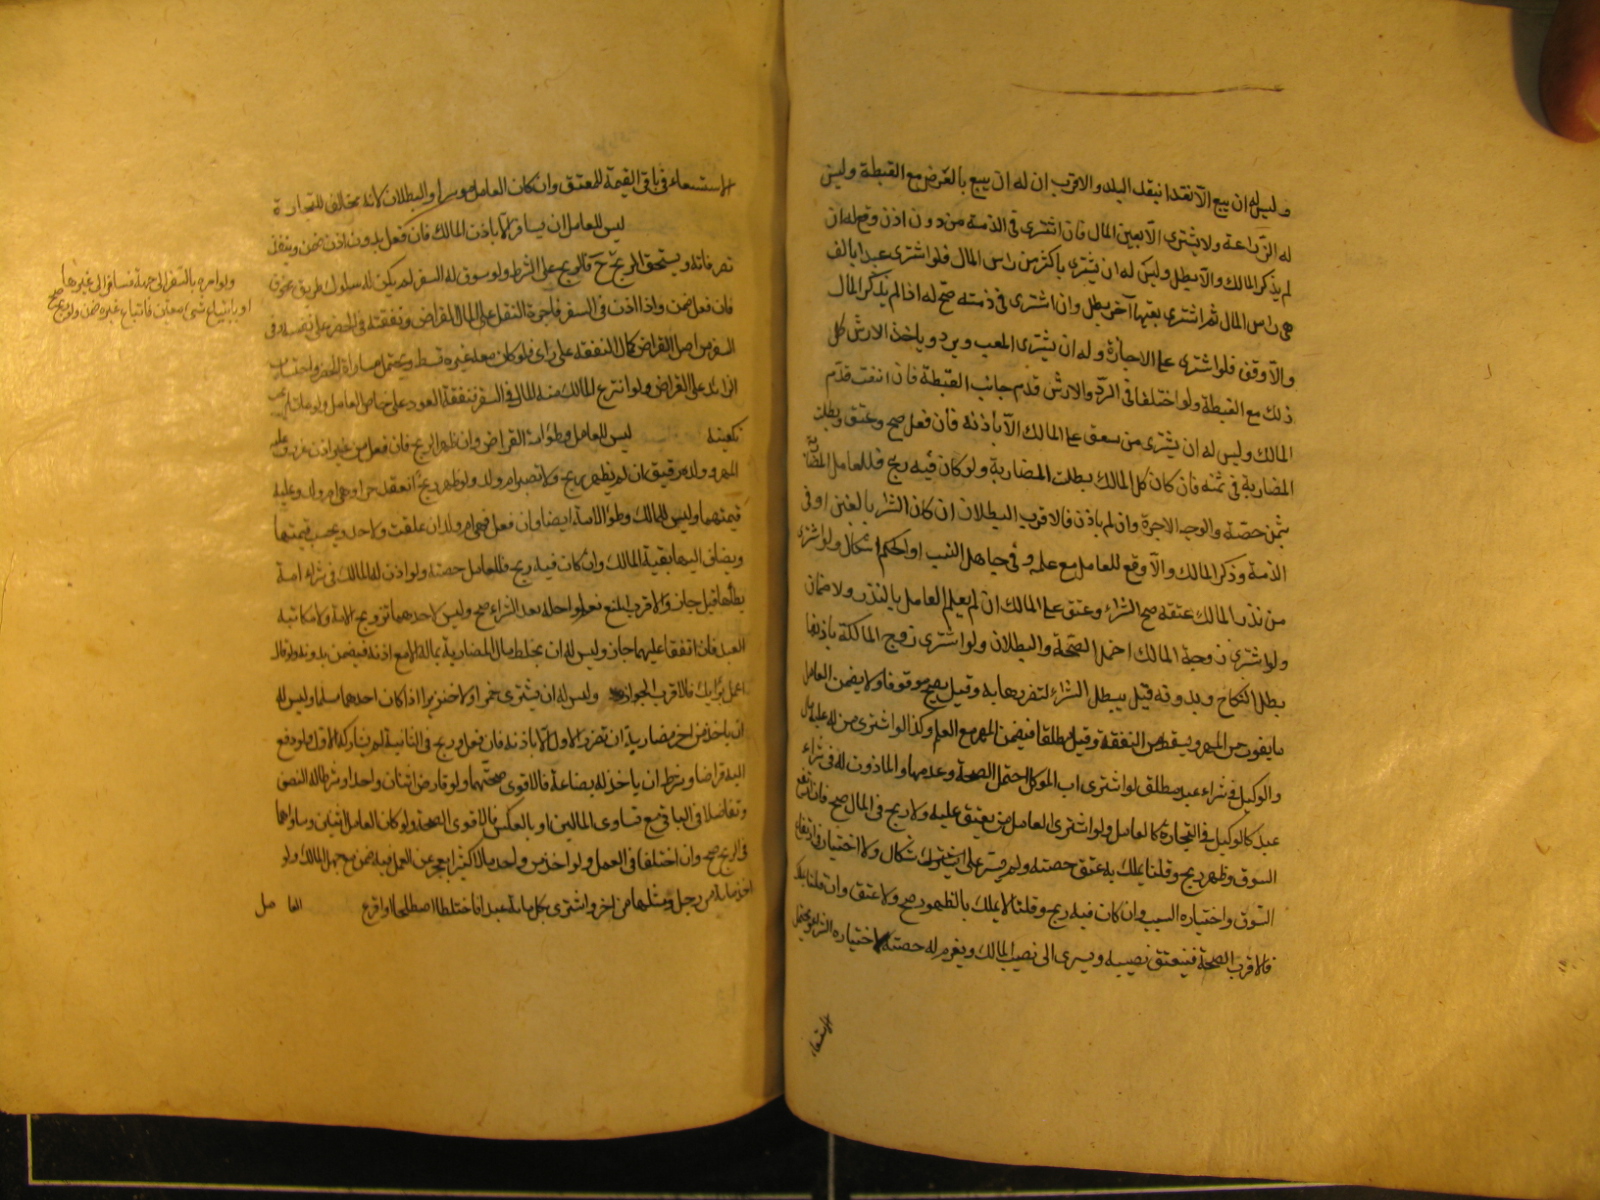 وليس له ان يبيع الا نقدا بنقد البلد والاقرب ان له ان يبيع بالعرض مع الغبطة وليس
له الزراعة ولا يشترى الا بعين المال فان اشترى فى الذمة من دون اذن وقع له ان
لم يذكر المالك والا بطل وليس له ان يشترى باكثر من راس المال فلو اشترى عبدا بالف
هى راس المال ثم اشترى بعينها آخر بطل وان اشترى فى ذمته صح له اذا لم يذكر المال
والا وقف فلو اشترى على الاجازة وله ان يشترى المعيب ويرد وياخذ الارش كل
ذلك مع الغبطة ولو اختلفا فى الرد والارش قدم جانب الغبطة فان انتفت قدم
المالك وليس له ان يشترى من ينعتق على المالك الا باذنه فان فعل صح وعتق وبطلت
المضاربة فى ثمنه فان كان كل المالك بطلت المضاربة ولو كان فيه ربح فللعامل المطالبة
بثمن حصته والوجه الاجرة وان لم ياذن فالاقرب البطلان ان كان الشرا بالعين او فى
الذمة وذكر المالك والا وقع للعامل مع علمه وفى جاهل النسب او الحكم اشكال ولو اشترى
من نذر المالك عتقه صح الشراء وعتق على المالك ان لم يعلم العامل بالنذر ولا ضمان
ولو اشترى زوجة المالك احتمل الصحة والبطلان ولو اشترى زوج المالكة باذنها
بطل النكاح وبدونه قيل يبطل الشراء لتضررها به وقيل يصح موقوفا ولا يضمن العامل
ما يفوت من المهر ويسقط من النفقة وقيل مطلقا فيضمن المهر مع العلم وكذا لو اشترى من له عليه مال
والوكيل فى شراء عبد مطلق لو اشترى اب الموكل احتمل الصحة وعدمها والماذون له فى شراء
عبد كالوكيل وفى التجارة كالعامل ولو اشترى العامل من ينعتق عليه ولا ربح فى المال صح فان ارتفع
السوق وظهر ربح وقلنا يملك به عتق حصته ولم يسر على اشكال ولا اختيار فى ارتفاع
السوق واختياره السبب وان كان فيه ربح وقلنا لا يملك بالظهور صح ولا عتق وان قلنا يملك
فالاقرب الصحة فينعتق نصيبه ويسرى الى نصيب المالك ويغرم له حصته لاختياره الشراء ويحتمل
الاستسعاء
الاستسعاء فى باقى القيمة للمعتق وان كان العامل موسرا والبطلان لانه مخالف للتجارة
ليس للعامل ان يسافر الا باذن المالك فان فعل بدون اذن ضمن وينفذ
تصرفاته ويستحق الربح ح فالربح على الشرط ولو سوغ له السفر لم يكن له سلوك طريق مخوف
فان فعل ضمن واذا اذن فى السفر فاجرة النقل على المال القراض ونفقته فى الحضر على نفسه وفى
السفر من اصل القراض كمال النفقة على راى فلو كان معه غيره قسط ويحتمل مساواة الحضر واحتساب
الزائد على القراض ولو انتزع المالك منه المال فى السفر فنفقة العود على خاص العامل ولو مات لم يجب
تكفينه ليس للعامل وطؤ امة القراض وان ظهر الربح فان فعل من غير اذن غرم عليه
المهر وولده رقيق ان لم يظهر ربح ولا تصير ام ولد ولو ظهر ربح انعقد حرا وهى ام ولد وعليه
قيمتهما وليس للمالك وطؤ الامة ايضا وان فعل فهى ام ولد ان علقت ولا حد ويحسب قيمتها
ويضاف اليها بقية المالك وان كان فيه ربح فللعامل حصته ولو اذن له المالك فى شراء امة
يطأها قيل جاز والاقرب المنع نعم لو احله بعد الشراء صح وليس لاحدهما تزويج الامة ولا مكاتبة
العبد فان اتفقا عليهما جاز وليس له ان يخلط مال المضاربة بماله الا مع اذنه فيضمن بدونه ولو قال
اعمل برايك فالاقرب الجواز وليس له ان يشترى خمرا ولا خنزيرا اذا كان احدهما مسلما وليس له
ان ياخذ من اخر مضاربة ان تضرر الاول الا باذنه فان فعل وربح فى الثانية لم يشاركه الاول ولو دفع
اليه قراضا وشرط ان ياخذ له بضاعة فالاقوى صحتهما ولو قارض اثنان واحدا وشرطا له النصف
وتفاضلا فى الباقى مع تساوى المالين او بالعكس فالاقوى الصحة ولو كان العامل اثنين وساواهما
فى الربح صح وان اختلفا فى العمل ولو اخذ من واحد مالا كثيرا يعجز عن العمل فيه ضمن مع جهل المالك ولو
اخذ مائة من رجل ومثلها من اخر واشترى بكل مائة عبدا فاختلطا اصطلحا او اقرع
ولو امره بالسفر الى جهة فسافر الى غيرها
او بابتياع شىء معين فابتاع غيره ضمن والربح صح